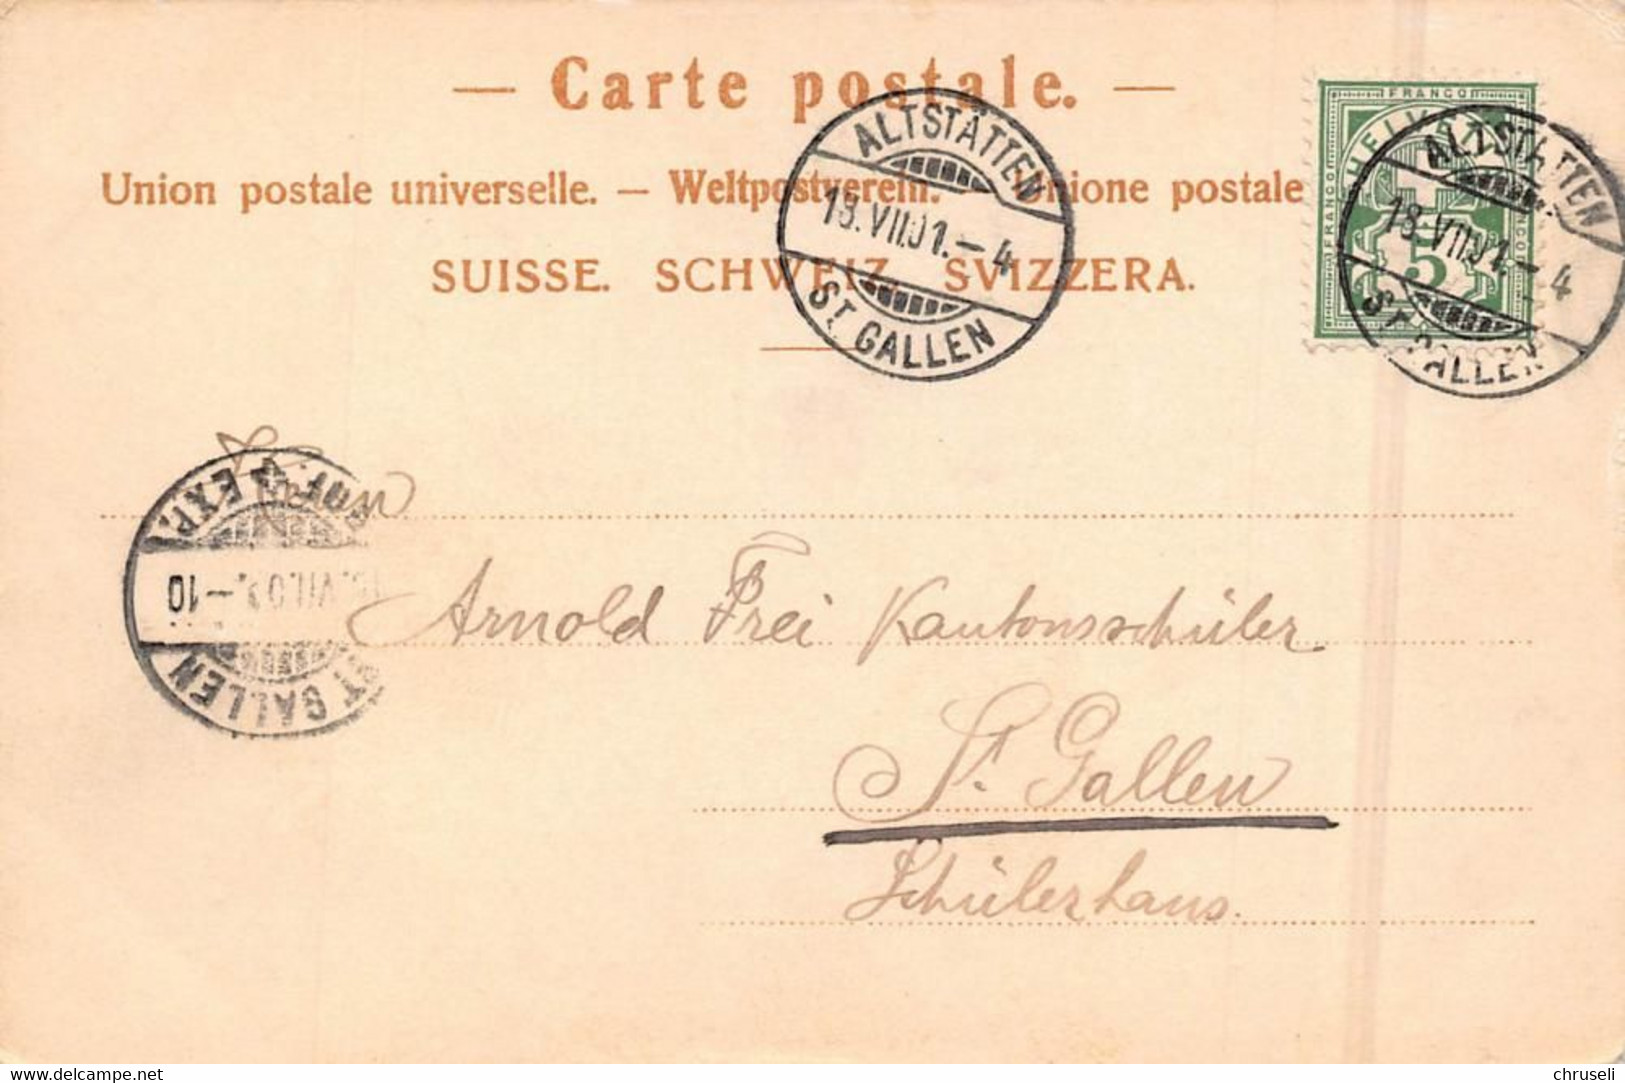 — Carte postale. —
Union postale universelle. — Weltpostverein. — Unione postale
SUISSE. SCHWEIZ. SVIZZERA.
FRANCO
HELVETIA
FRANCO
FRANCO
5
ALTSTÄTTEN
18.VII.01.–4
ST. GALLEN
ALTSTÄTTEN
18.VII.01.–4
ST. GALLEN
EXP.
VII.0 –10
ST. GALLEN
Arnold Frei Kantonsschüler
St. Gallen
Schülerhaus.
delcampe.net
chruseli